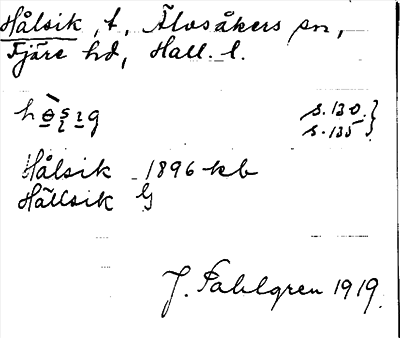 Hålsik, t, Älvsåkers sn,
Fjäre hd, Hall. l.
s. 130
s. 135
Hålsik 1896 kb
Hällsik G
J. Sahlgren 1919.